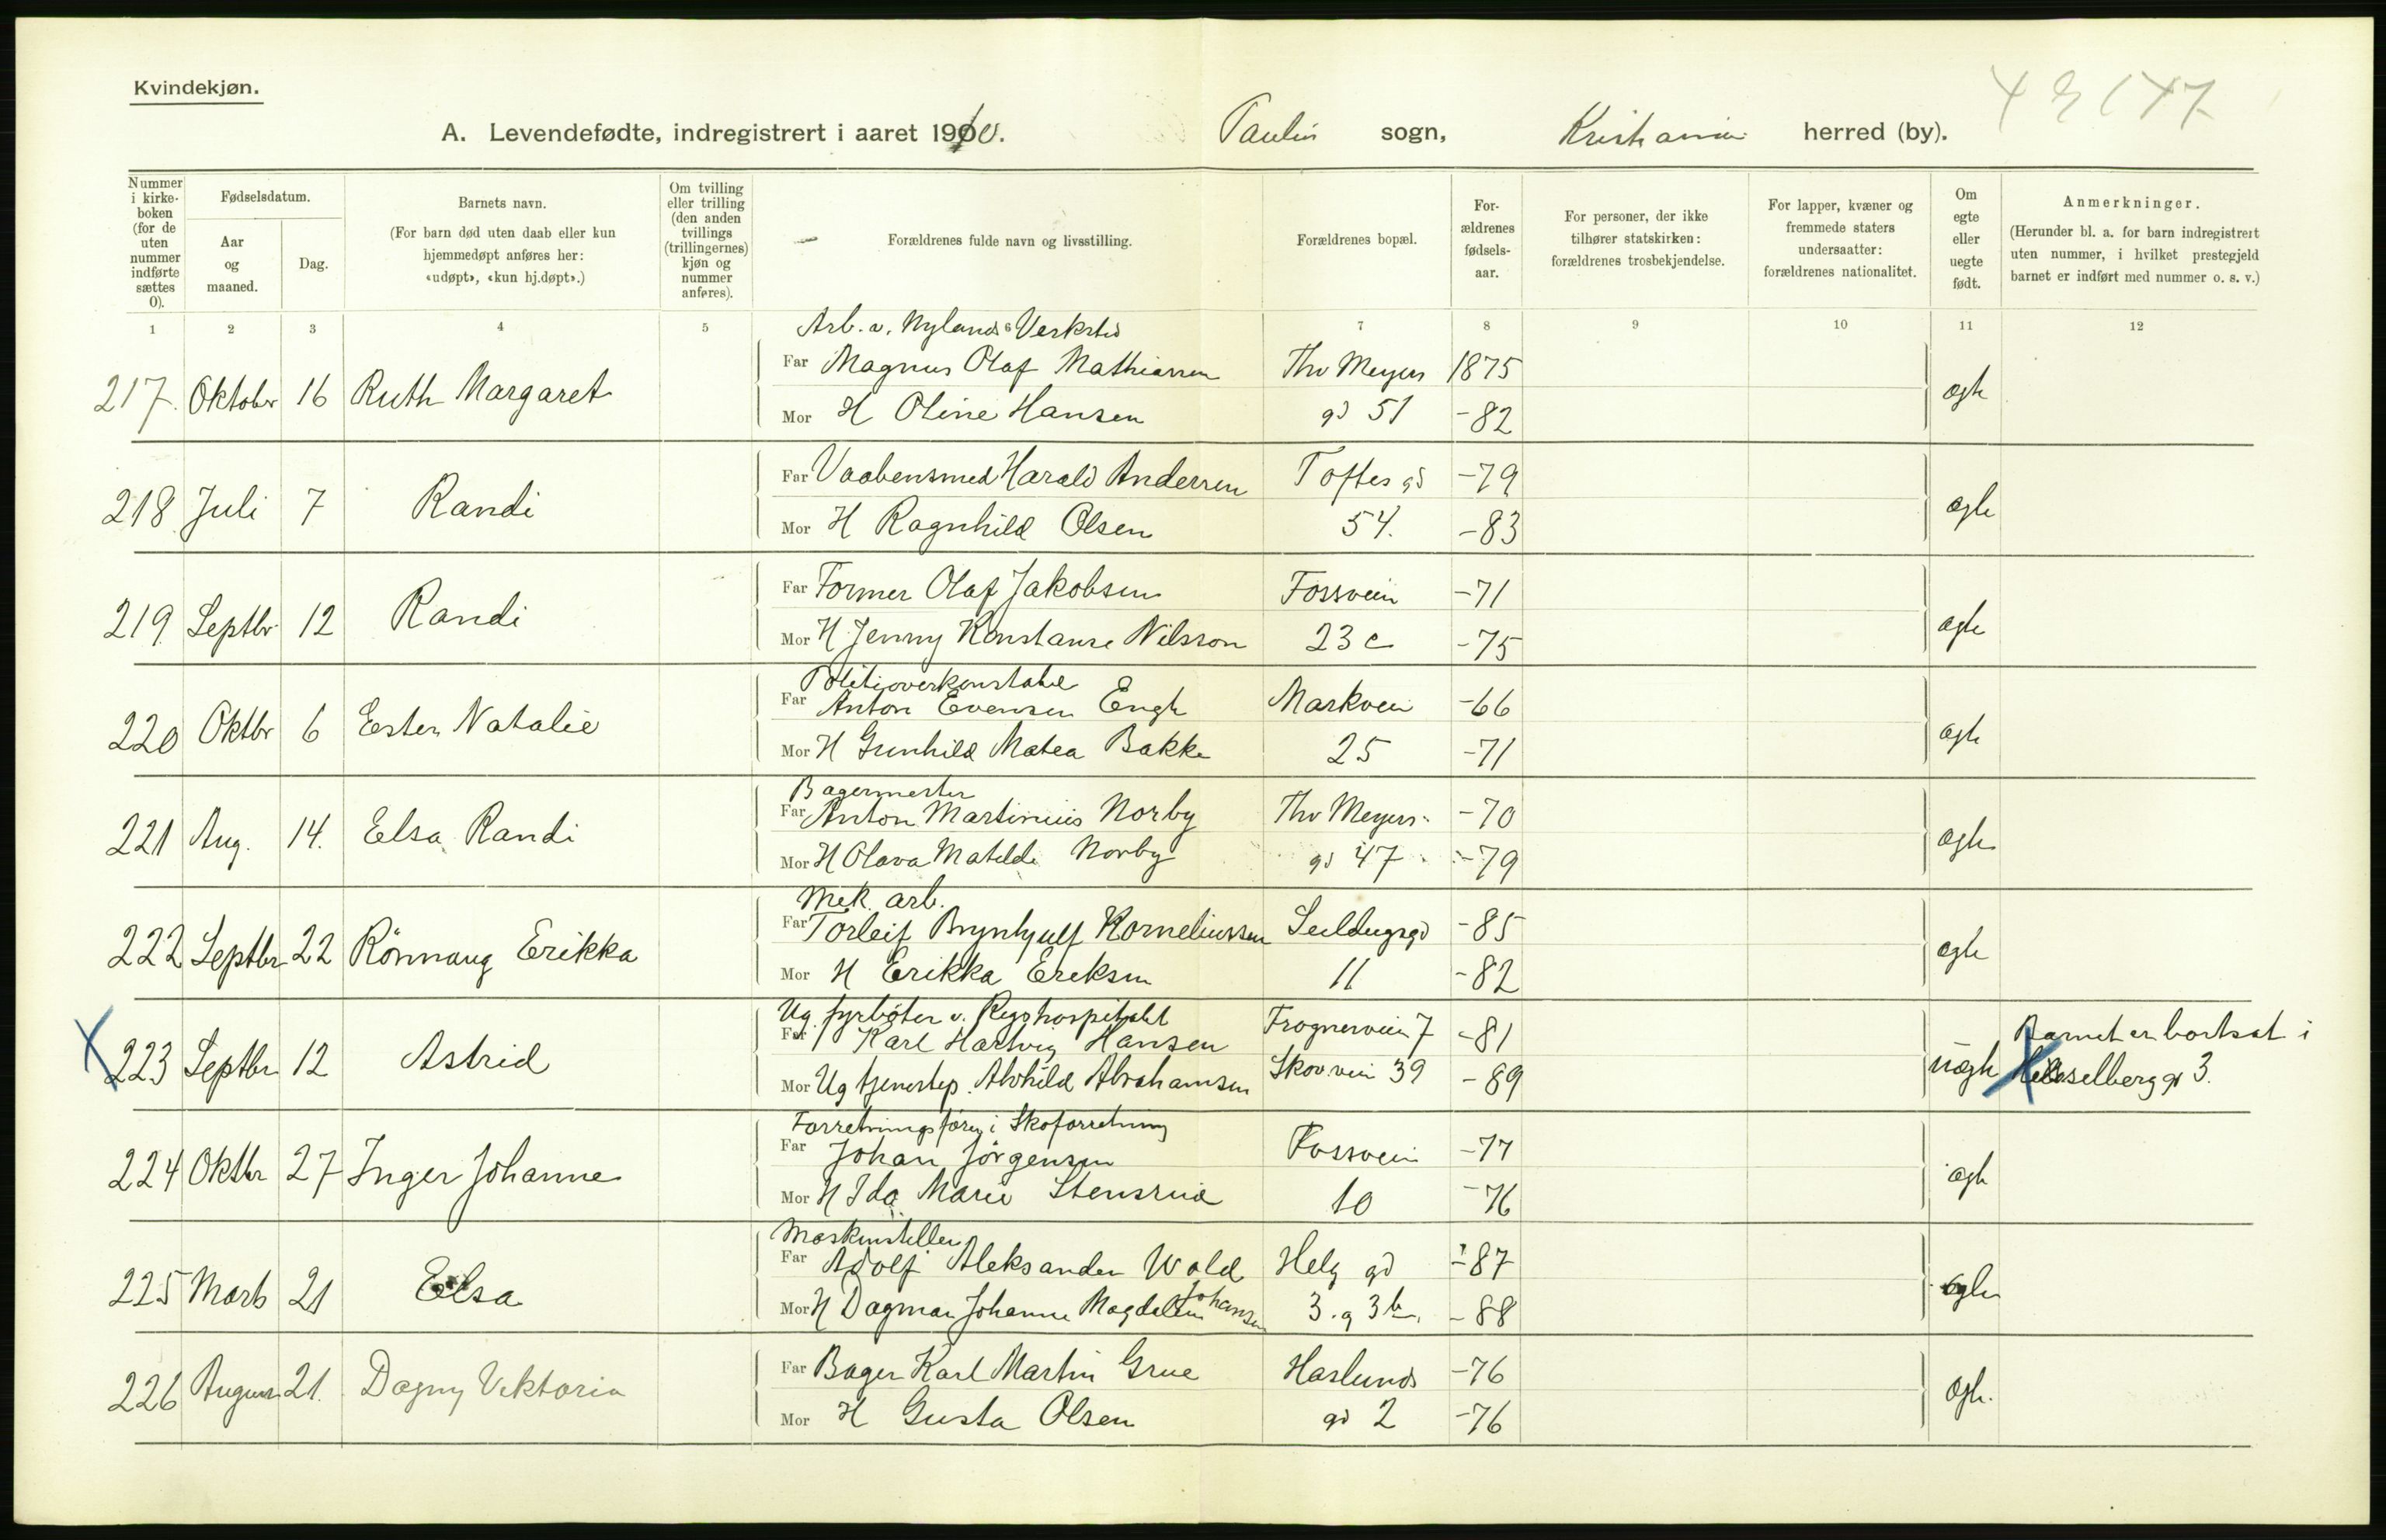 Kvindekjøn.
A. Levendefødte, indregistrert i aaret 1910. Paulus sogn, Kristiania herred (by).
Nummer i kirkeboken (for de uten nummer indførte sættes 0).
Fødselsdatum.
Aar og maaned.
Dag.
Barnets navn.
(For barn død uten daab eller kun hjemmedøpt anføres her: «udøpt», «kun hj.døpt».)
Om tvilling eller trilling (den anden tvillings (trillingernes) kjøn og nummer anføres).
Forældrenes fulde navn og livsstilling.
Forældrenes bopæl.
Forældrenes fødselsaar.
For personer, der ikke tilhører statskirken: forældrenes trosbekjendelse.
For lapper, kvæner og fremmede staters undersaatter: forældrenes nationalitet.
Om egte eller uegte født.
Anmerkninger.
(Herunder bl. a. for barn indregistrert uten nummer, i hvilket prestegjeld barnet er indført med nummer o. s. v.)
1 2 3 4 5 6 7 8 9 10 11 12
Arb. v. Nylands Verksted
217. Oktober 16 Ruth Margaret Far Magnus Olaf Mathiassen Thv Meyers 1875 ægte
Mor H Oline Hansen gd 51 -82
218 Juli 7 Randi Far Vaabensmed Harald Andersen Toftes gd -79 ægte
Mor H Ragnhild Olsen 54. -83
219 Septbr 12 Randi Far Former Olaf Jakobsen Fossvein -71 ægte
Mor H Jenny Konstanse Nilsson 23 c -75
Politioverkonstabel
220 Oktbr 6 Ester Natalie Far Anton Evensen Engh Markvei -66 ægte
Mor H Gunhild Matea Bakke 25 -71
Bagermester
221 Aug. 14. Elsa Randi Far Anton Martinius Norby Thv Meyers -70 ægte
Mor H Olava Matilde Norby gd 47 -79
Mek. arb.
222 Septbr 22 Rönnaug Erikka Far Torleif Brynhjulf Korneliussen Seildugsgd -85 ægte
Mor H Erikka Ereksen 11 -82
Ug. fyrböter v. Rigshospitalet
223 Septbr 12 Astrid Far Karl Hartvig Hansen Frognerveien 7 -81 uægte Barnet er bortsat i
Mor Ug tjenestep. Alvhild Abrahamsen Skovvein 39 -89 Hesselberg gd 3.
Forretningsförer i Skoforretning
224 Oktbr 27 Inger Johanne Far Johan Jörgensen Fossvein -77 ægte
Mor H Ida Marie Stensrud 10 -76
Maskinstiller
225 Marts 21 Elsa Far Adolf Aleksander Wold Helg gd -87 ægte
Mor H Dagmar Johanne Magdalene Johansen 3. g 3 b. -88
226 August 21. Dagny Viktoria Far Bager Karl Martin Grue Haslunds -76 ægte.
Mor H Gusta Olsen gd 2 -76